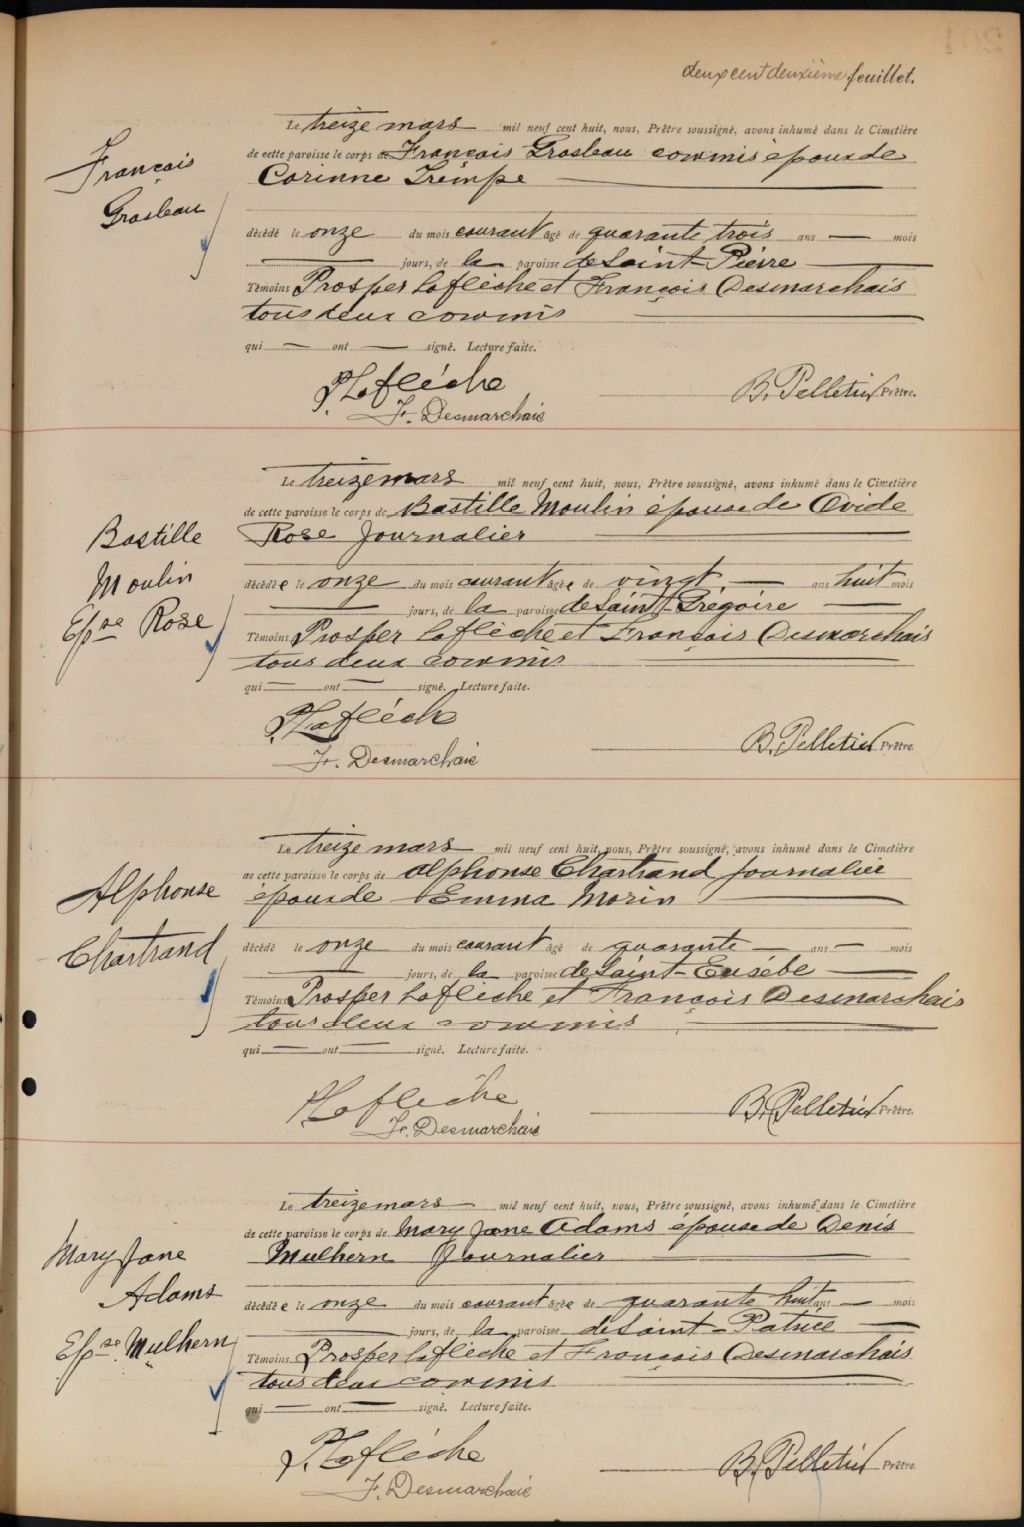 deux cent deuxième feuillet.
François
Grosleau
Le treize mars mil neuf cent huit, nous, Prêtre soussigné, avons inhumé dans le Cimetière
de cette paroisse le corps de François Grosleau commis époux de
Corinne Trempe
décédé le onze du mois courant âgé de quarante trois ans — mois
— jours, de la paroisse de Saint-Pierre
Témoins Prosper Laflèche et François Desmarchais
tous deux commis
qui — ont — signé. Lecture faite.
P. Laflèche
F. Desmarchais
B. Pelletier Prêtre.
Bastille
Moulin
Epse Rose
Le treize mars mil neuf cent huit, nous, Prêtre soussigné, avons inhumé dans le Cimetière
de cette paroisse le corps de Bastille Moulin épouse de Ovide
Rose Journalier
décédée le onze du mois courant âgée de vingt — ans huit mois
— jours, de la paroisse de Saint-Grégoire
Témoins Prosper Laflèche et François Desmarchais
tous deux commis
qui — ont — signé. Lecture faite.
P. Laflèche
F. Desmarchais
B. Pelletier Prêtre.
Alphonse
Chartrand
Le treize mars mil neuf cent huit, nous, Prêtre soussigné, avons inhumé dans le Cimetière
de cette paroisse le corps de Alphonse Chartrand journalier
époux de Emma Morin
décédé le onze du mois courant âgé de quarante — ans — mois
— jours, de la paroisse de Saint-Eusèbe
Témoins Prosper Laflèche et François Desmarchais
tous deux commis
qui — ont — signé. Lecture faite.
P. Laflèche
F. Desmarchais
B. Pelletier Prêtre.
Mary Jane
Adams
Epse Mulhern
Le treize mars mil neuf cent huit, nous, Prêtre soussigné, avons inhumé dans le Cimetière
de cette paroisse le corps de Mary Jane Adams épouse de Denis
Mulhern Journalier
décédée le onze du mois courant âgée de quarante huit ans — mois
— jours, de la paroisse de Saint-Patrice
Témoins Prosper Laflèche et François Desmarchais
tous deux commis
qui — ont — signé. Lecture faite.
P. Laflèche
F. Desmarchais
B. Pelletier Prêtre.